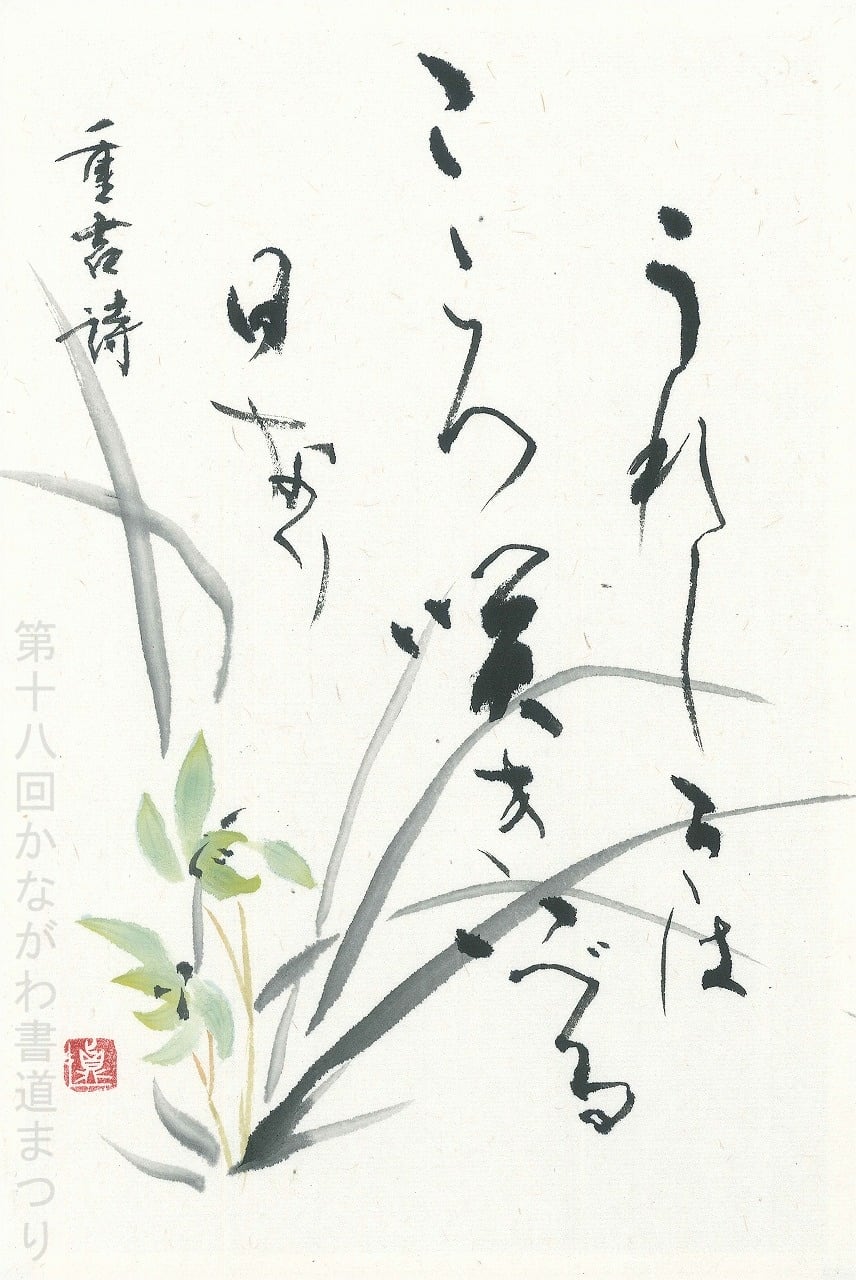 うれしきは
こゝろ咲きいづる
日なり
重吉詩
第十八回かながわ書道まつり